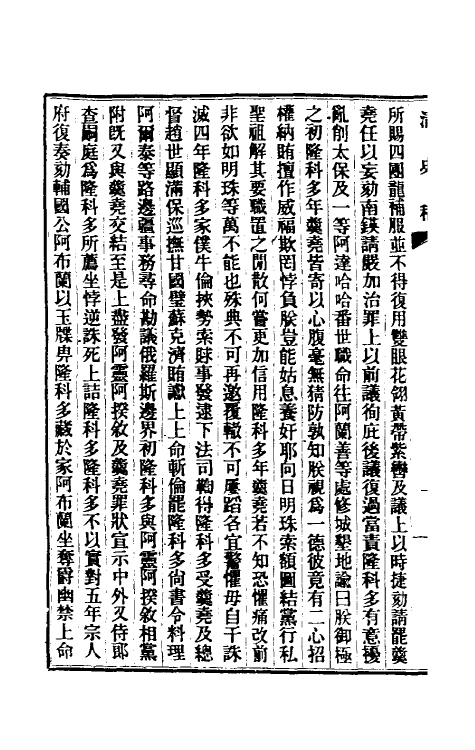 清史稿
所賜四團龍補服並不得復用雙眼花翎黃帶紫轡及議上以時捷劾請罷羹
堯任以妄劾南鍈請嚴加治罪上以前議徇庇後議復過當責隆科多有意擾
亂削太保及一等阿達哈哈番世職命往阿蘭善等處修城墾地諭曰朕御極
之初隆科多年羹堯皆寄以心腹毫無猜防孰知朕視爲一德彼竟有二心招
權納賄擅作威福欺罔悖負朕豈能姑息養奸耶向日明珠索額圖結黨行私
聖祖解其要職置之閒散何嘗更加信用隆科多年羹堯若不知恐懼痛改前
非欲如明珠等萬不能也殊典不可再邀覆轍不可屢蹈各宜警懼毋自干誅
滅四年隆科多家僕牛倫挾勢索賕事發逮下法司鞫得隆科多受羹堯及總
督趙世顯滿保巡撫甘國璧蘇克濟賄讞上上命斬倫罷隆科多尙書令料理
阿爾泰等路邊疆事務尋命勘議俄羅斯邊界初隆科多與阿靈阿揆敘相黨
附旣又與羹堯交結至是上盡發阿靈阿揆敘及羹堯罪狀宣示中外又侍郎
查嗣庭爲隆科多所薦坐悖逆誅死上詰隆科多隆科多不以實對五年宗人
府復奏劾輔國公阿布蘭以玉牒畀隆科多藏於家阿布蘭坐奪爵幽禁上命